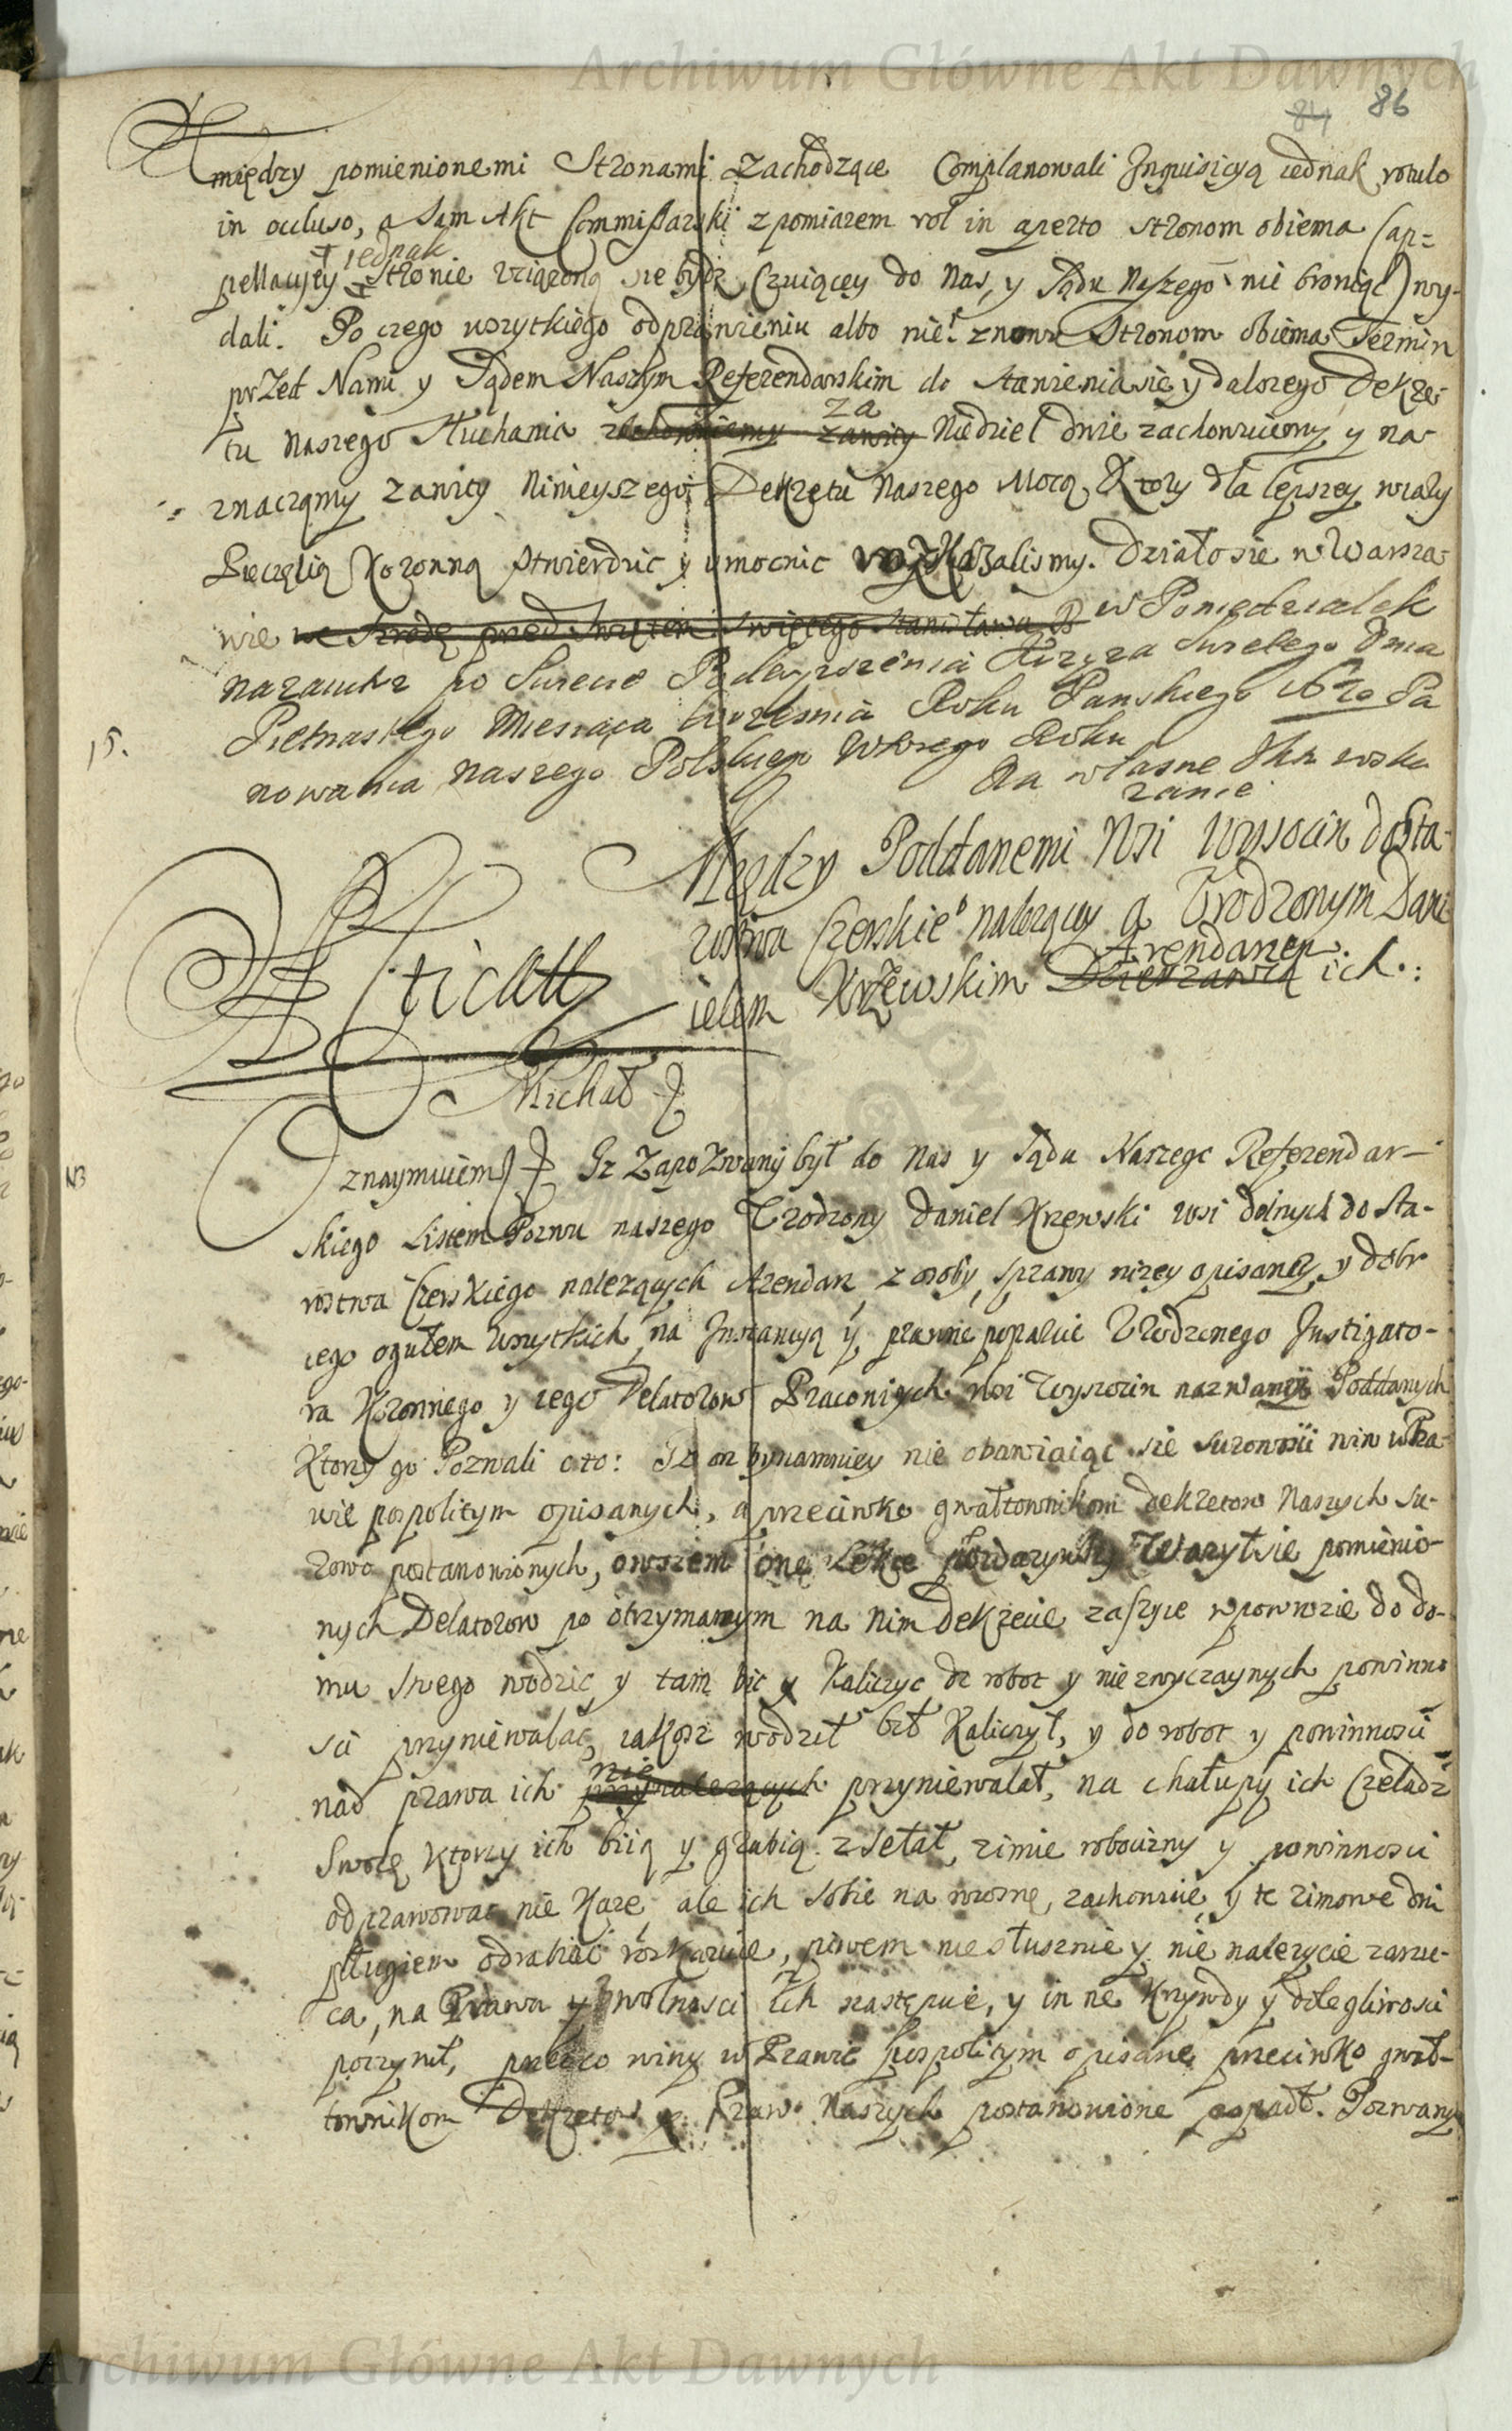 Archiwum Główne Akt Dawnych
84 86
między pomienionemi Stronami zachodzące Complanowali Inquisicyą iednak rotulo
in occluso, a Sam Akt Commissarski z pomiarem rol in aperto stronom obiema (ap=
iednak
pellacyey Stronie uciążoną się bydz czuiącey do Nas, y Sądu Naszego nie broniąc) wy-
dali. Po czego wszytkiego odprawieniu albo nie: znowu Stronom obiema Termin
przed Nami y Sądem Naszym Referendarskim do stawienia się y dalszego Dekre-
za
tu naszego słuchania zachowuiemy zawity Niedziel dwie zachowuiemy y na-
znaczamy zawity Ninieyszego Dekretu Naszego Mocą. Ktory dla lepszey wiary
Pieczęcią Koronną stwierdzic y umocnic rozkazalismy. Działo się w Warsza-
wie we Srodę przed Swiętem Swiętego Stanisława B. w Poniedziałek
nazaiutrz po Swięcie Podwyzszenia Krzyza Swiętego Dnia
15.
Pietnastego Miesiąca Wrzesnia Roku Panskiego 1670 Pa
nowania naszego Polskiego Wtorego Roku
Na własne JKM roska
zanie
Między Poddanemi Wsi Wysocin do Sta-
rostwa Czerskie° nalezącey a Urodzonym Dani
Arendarzem
ielem Krzewskim Dzierzawcą ich.:
Michał
NB
Oznaymuiemy Iz Zapozwany był do Nas y Sądu Naszego Referendar-
skiego Listem Pozwu naszego Urodzony Daniel Krzewski wsi dolnych do Sta-
rostwa Czerskiego nalezących Arendarz z osoby, sprawy nizey opisaney y dobr
iego ogułem wszytkich, na Instancyą y prawne poparcie Urodzonego Instigato-
ra Koronnego y iego Delatorow Pracowitych wsi Wysocin nazwaney Poddanych
Ktorzy go Pozwali oto: Iz on bynamniey nie obawiaiąc się surowosci win w Pra-
wie pospolitym opisanych, a przeciwko gwałtownikom dekretow Naszych su-
rowo postanowionych, owszem one Lekce powazył się pomienio-
nych Delatorow po otrzymanym na nim dekrecie zaszyie w powrozie do do-
mu swego wodzic y tam bic y Kaliczyc do robot y niezwyczaynych powinno
sci przyniewalac, iakosz wodził bił Kaliczył, y do robot y powinnosci
nie
nad prawa ich przynalezących przyniewalał, na chałupy ich Czeladz
Swoię, Ktorzy ich biią y grabią zsełał, zimie robocizny y powinnosci
odprawowac nie Kaze ale ich sobie na wiosnę, zachowuie, y te zimowe dni
pługiem odrabiac roskazuie, piwem niesłusznie y nie nalezycie zarzu-
ca, na Prawa y wolnosci ich następuie, y inne Krzywdy y dolegliwosci
poczynił, przeco winy w Prawie pospolitym opisane, przeciwko gwał-
townikom Dekretow y Praw Naszych postanowione popadł. Pozwany
Archiwum Główne Akt Dawnych